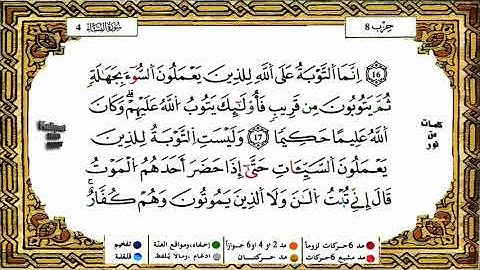 4 سُورَةُ النِّسَاء
حِزْب 8
١٦ إِنَّمَا ٱلتَّوْبَةُ عَلَى ٱللَّهِ لِلَّذِينَ يَعْمَلُونَ ٱلسُّوٓءَ بِجَهَٰلَةٍ
ثُمَّ يَتُوبُونَ مِن قَرِيبٍ فَأُوْلَٰٓئِكَ يَتُوبُ ٱللَّهُ عَلَيْهِمْۗ وَكَانَ
ٱللَّهُ عَلِيمًا حَكِيمًا ١٧ وَلَيْسَتِ ٱلتَّوْبَةُ لِلَّذِينَ
يَعْمَلُونَ ٱلسَّيِّـَٔاتِ حَتَّىٰٓ إِذَا حَضَرَ أَحَدَهُمُ ٱلْمَوْتُ
قَالَ إِنِّي تُبْتُ ٱلْـَٰٔنَ وَلَا ٱلَّذِينَ يَمُوتُونَ وَهُمْ كُفَّارٌۚ
كلمات
من
نور
مد 6 حركات لزوماً
مد 2 أو 4 أو 6 جوازاً
إخفاء، ومواقع الغنّة
تفخيم
مد مشبع 6 حركات
مد حركتان
ادغام، ومالا يُلفظ
قلقلة